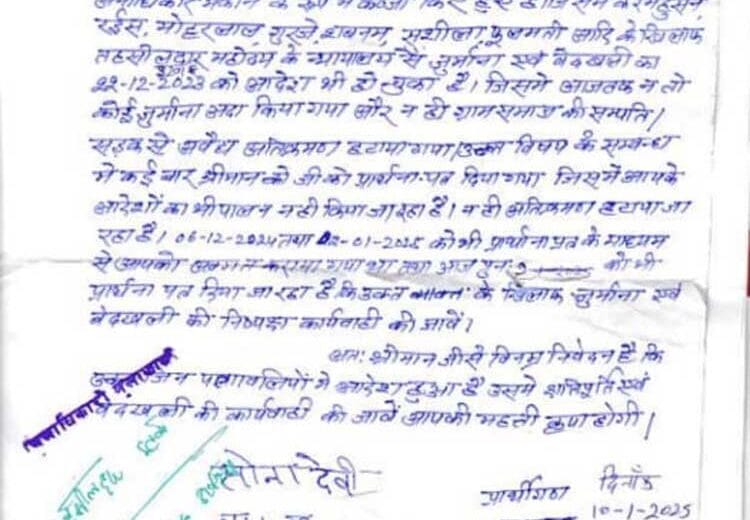 रईस, मोहरलाल, गुरजे, शबनम, सुशीला फूलमती आदि के खिलाफ
तहसीलदार महोदय के न्यायालय से जुर्माना एवं बेदखली का
22-12-2023 को आदेश भी हो चुका है। जिसमें आजतक न तो
कोई जुर्माना अदा किया गया और न ही ग्राम समाज की सम्पति/
सड़क से अवैध अतिक्रमण हटाया गया। उक्त विषय के सम्बन्ध
मे कई बार श्रीमान को जी को प्रार्थना-पत्र दिया गया जिसमें आपके
आदेशों का भी पालन नही किया जा रहा है। न ही अतिक्रमण हटाया जा
रहा है। 06-12-2024 तथा 02-01-2025 को भी प्रार्थना पत्र के माध्यम
से आपको अवगत कराया गया था तथा आज पुनः को भी
प्रार्थना पत्र दिया जा रहा है कि उक्त के खिलाफ जुर्माना एवं
बेदखली की निष्पक्ष कार्यवाही की जावें।
अतः श्रीमान जी से विनम्र निवेदन है कि
उक्त जिन पत्रावलियों मे आदेश हुआ है उसमे क्षतिपूर्ति एवं
बेदखली की कार्यवाही की जावें आपकी महती कृपा होगी।
सोना देवी
प्रार्थीगण
दिनाँक
10-1-2025